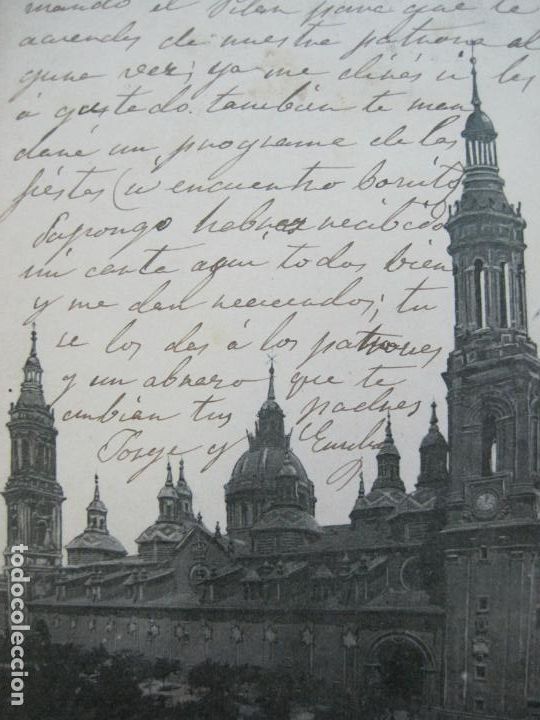 mando el Pilar para que te
acuerdes de nuestra patrona al
guna vez; ya me dirás si les
á gustado. también te man
daré un programa de las
fiestas (si encuentro bonito)
Supongo habras recibido
mi carta aquí todos bien
y me dan recuerdos; tu
se los das á los patrones
y un abrazo que te
embian tus padres
Jorge y
todocoleccion.net